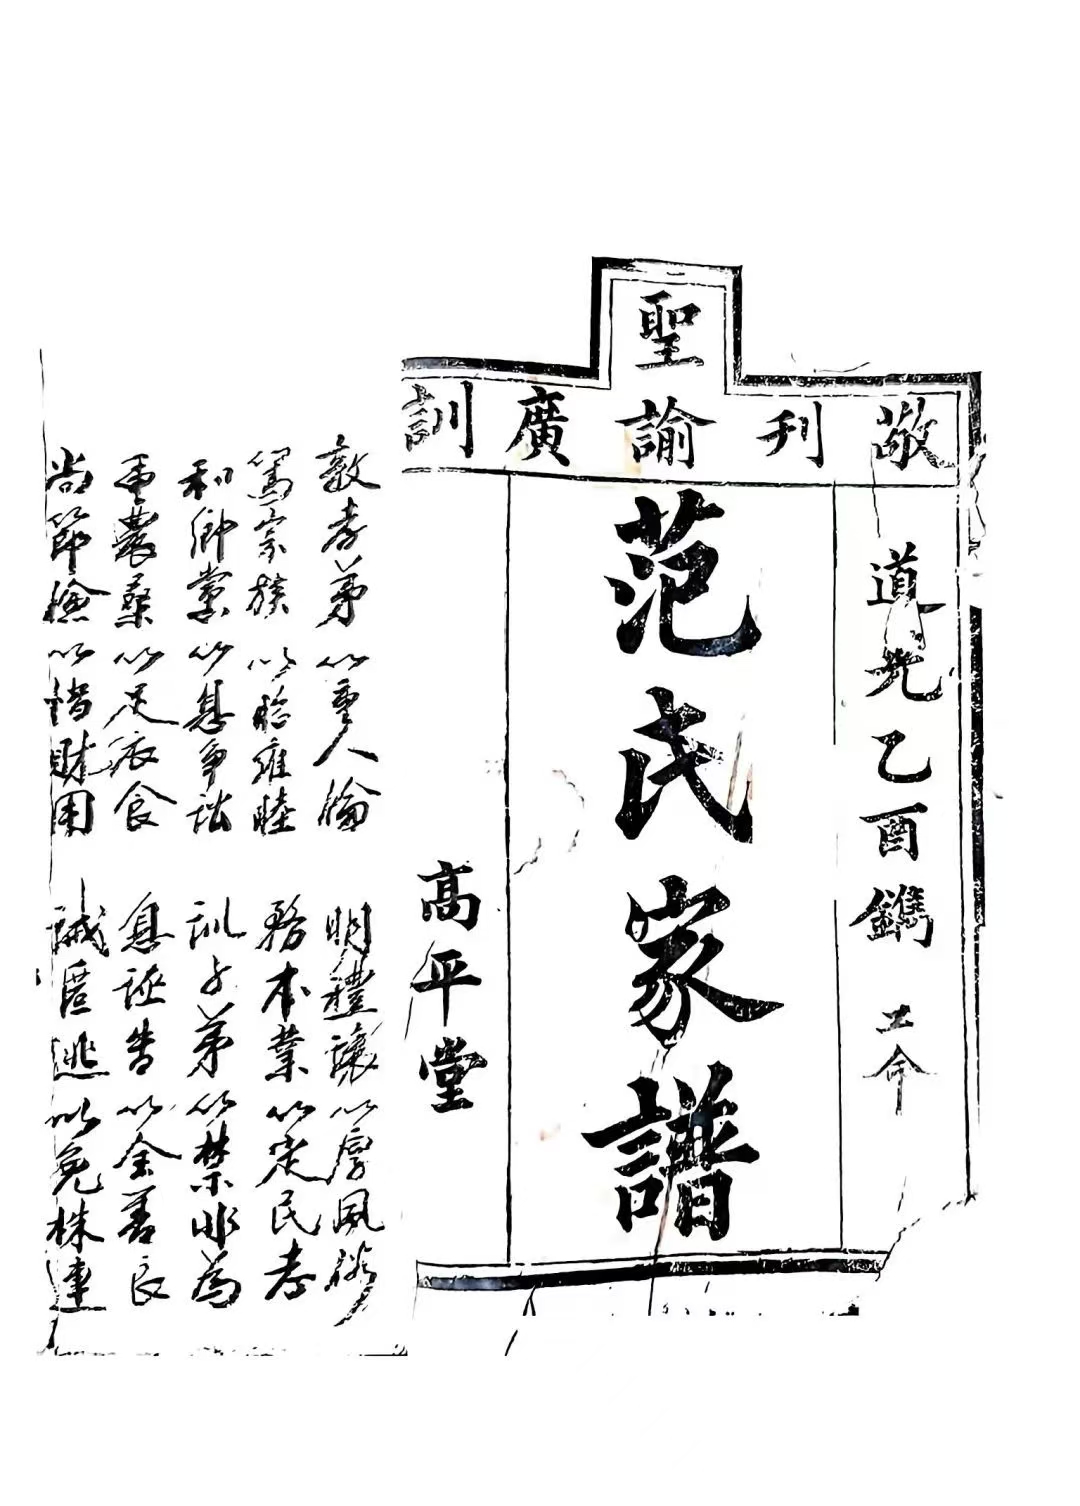 敬刊聖諭廣訓
道光乙酉鐫 工命
范氏家譜
高平堂
敦孝弟以重人倫 明禮讓以厚風俗
篤宗族以昭雍睦 務本業以定民孝
和鄉黨以息争訟 訓子弟以禁非為
重農桑以足衣食 息誣告以全善良
尚節儉以惜財用 誡匿逃以免株連